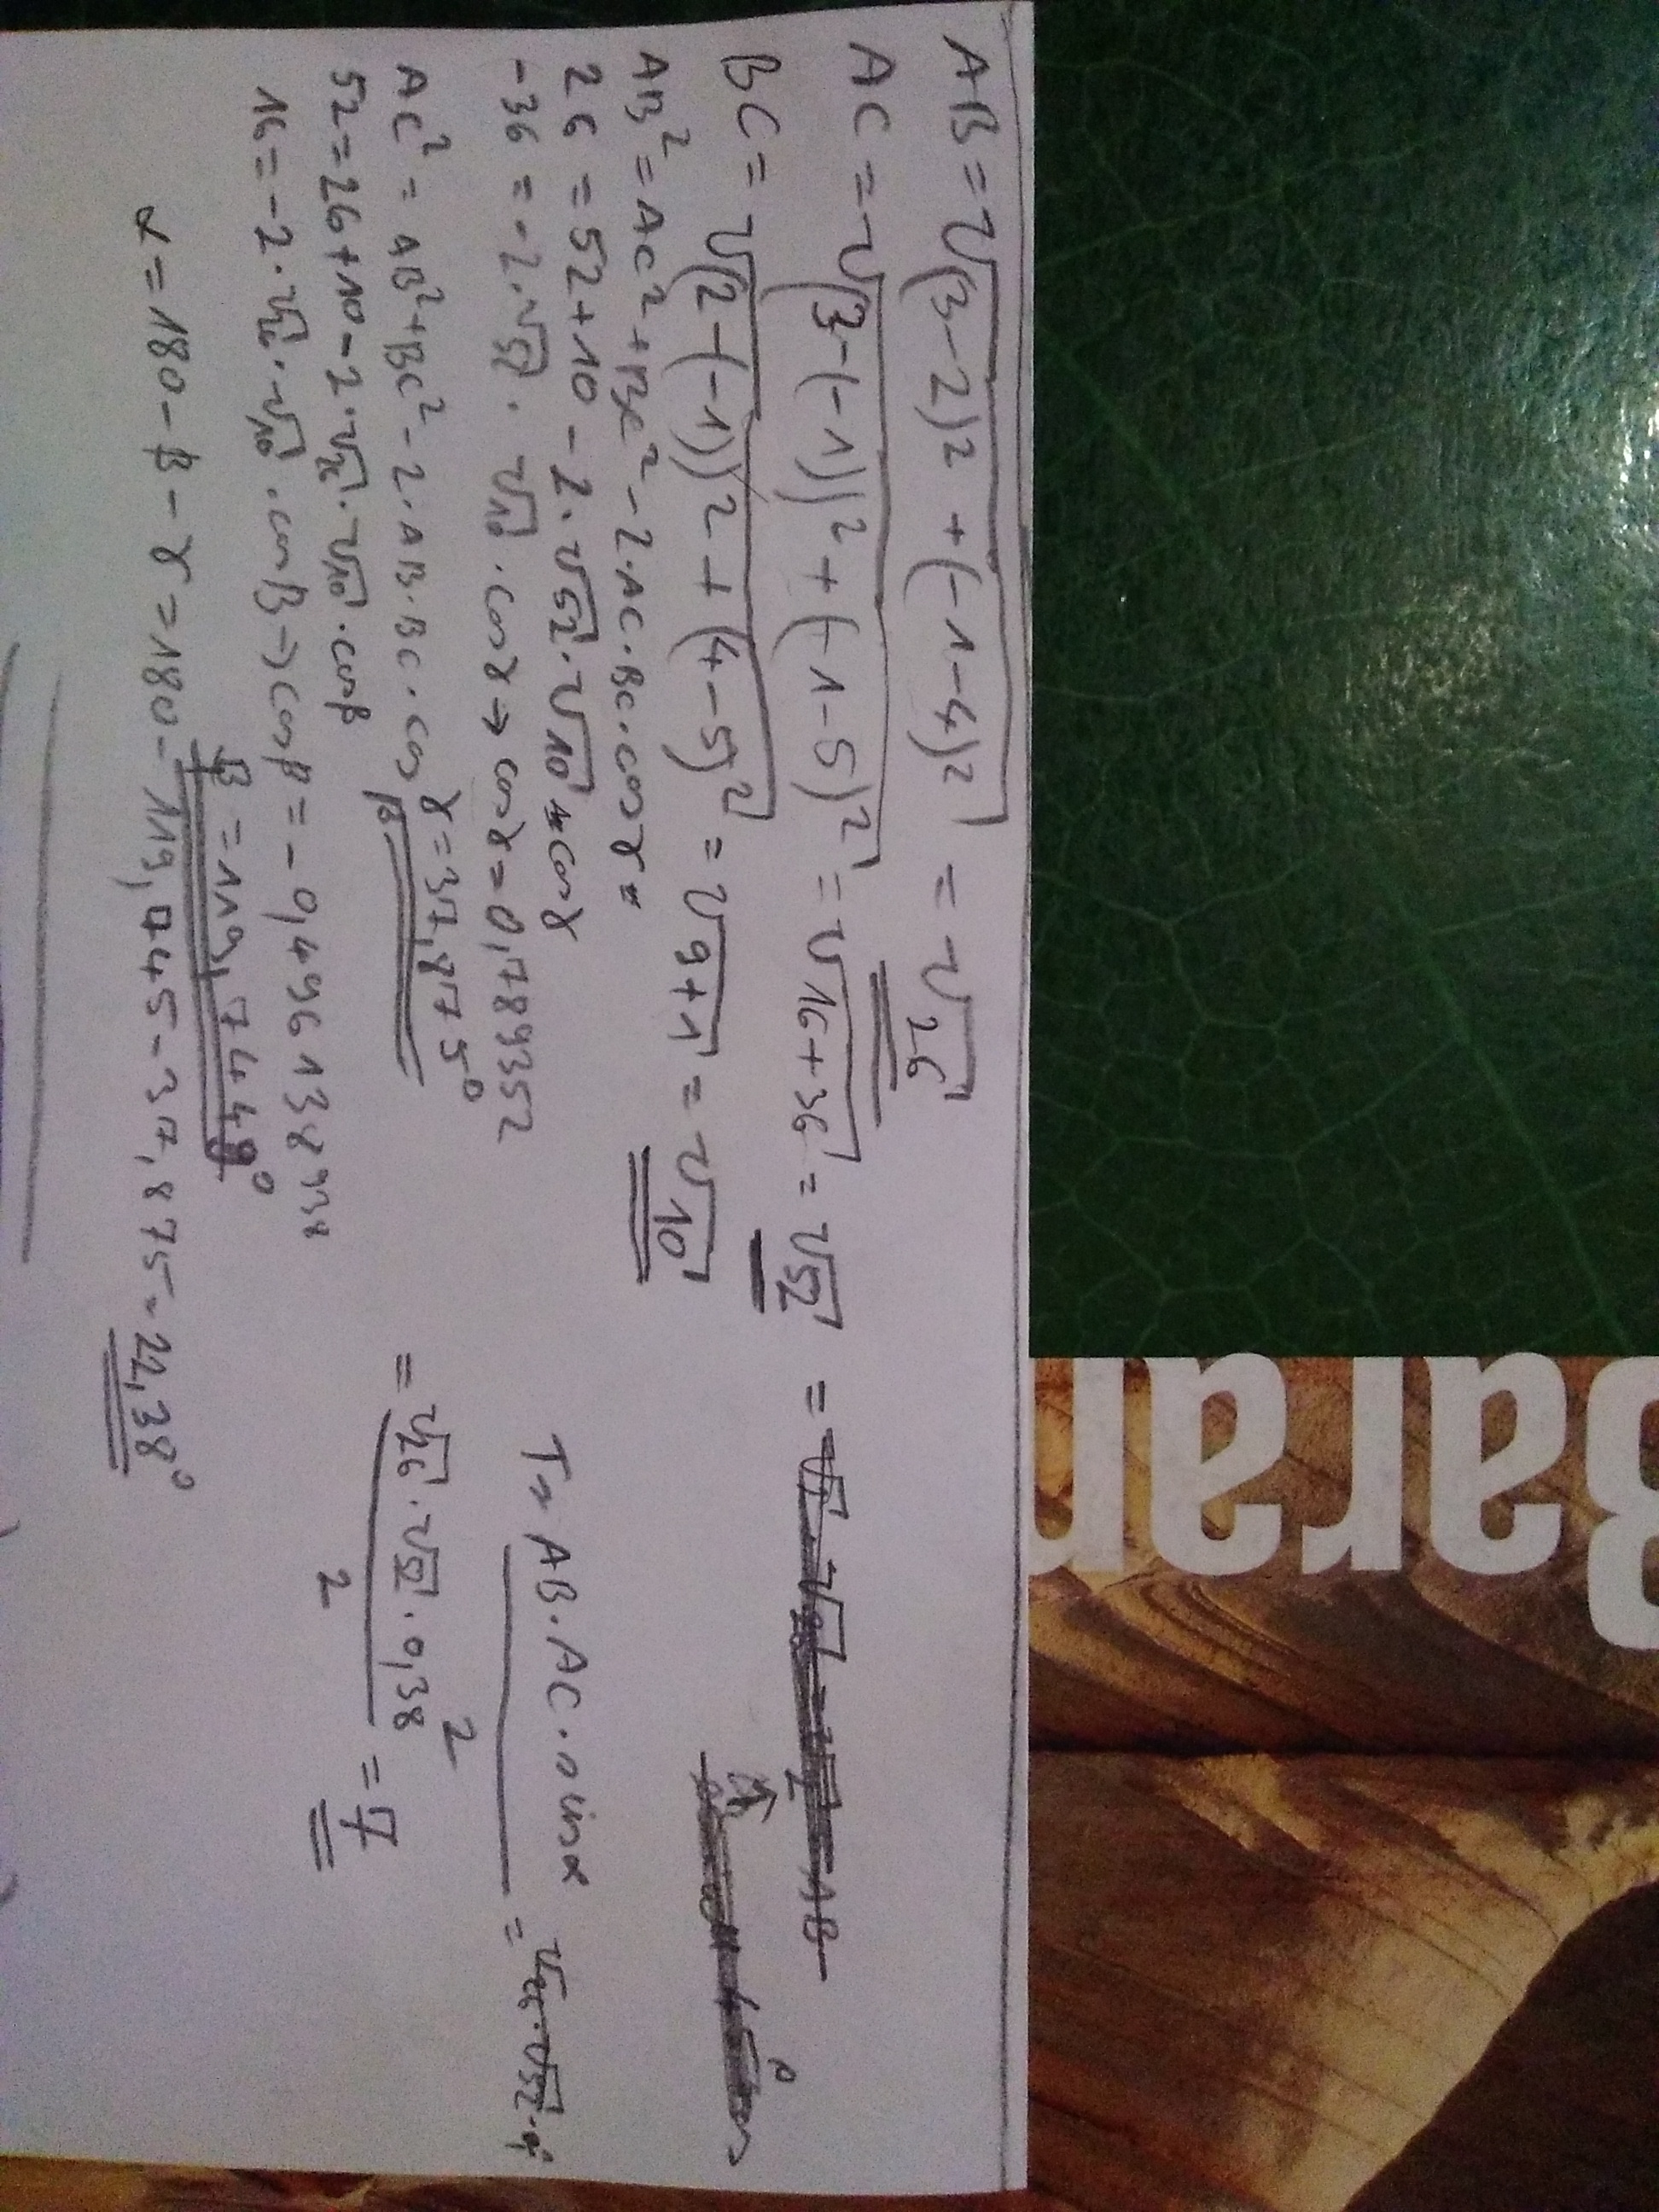 AB = √(3-2)² + (-1-4)² = √26
AC = √(3-(-1))² + (-1-5)² = √16+36 = √52 =
BC = √(2-(-1))² + (4-5)² = √9+1 = √10
AB² = AC² + BC² - 2·AC·BC·cosγ =
26 = 52+10 - 2·√52·√10·cosγ
-36 = -2·√52·√10·cosγ → cosγ = 0,789352
γ = 37,875°
AC² = AB² + BC² - 2·AB·BC·cosβ
52 = 26+10 - 2·√26·√10·cosβ
16 = -2·√26·√10·cosβ → cosβ = -0,496138938
β = 119,7448°
α = 180 - β - γ = 180 - 119,745 - 37,875 = 22,38°
T = AB·AC·sinα = √26·√52·
2
= √26·√52·0,38 = 7
2
Baran